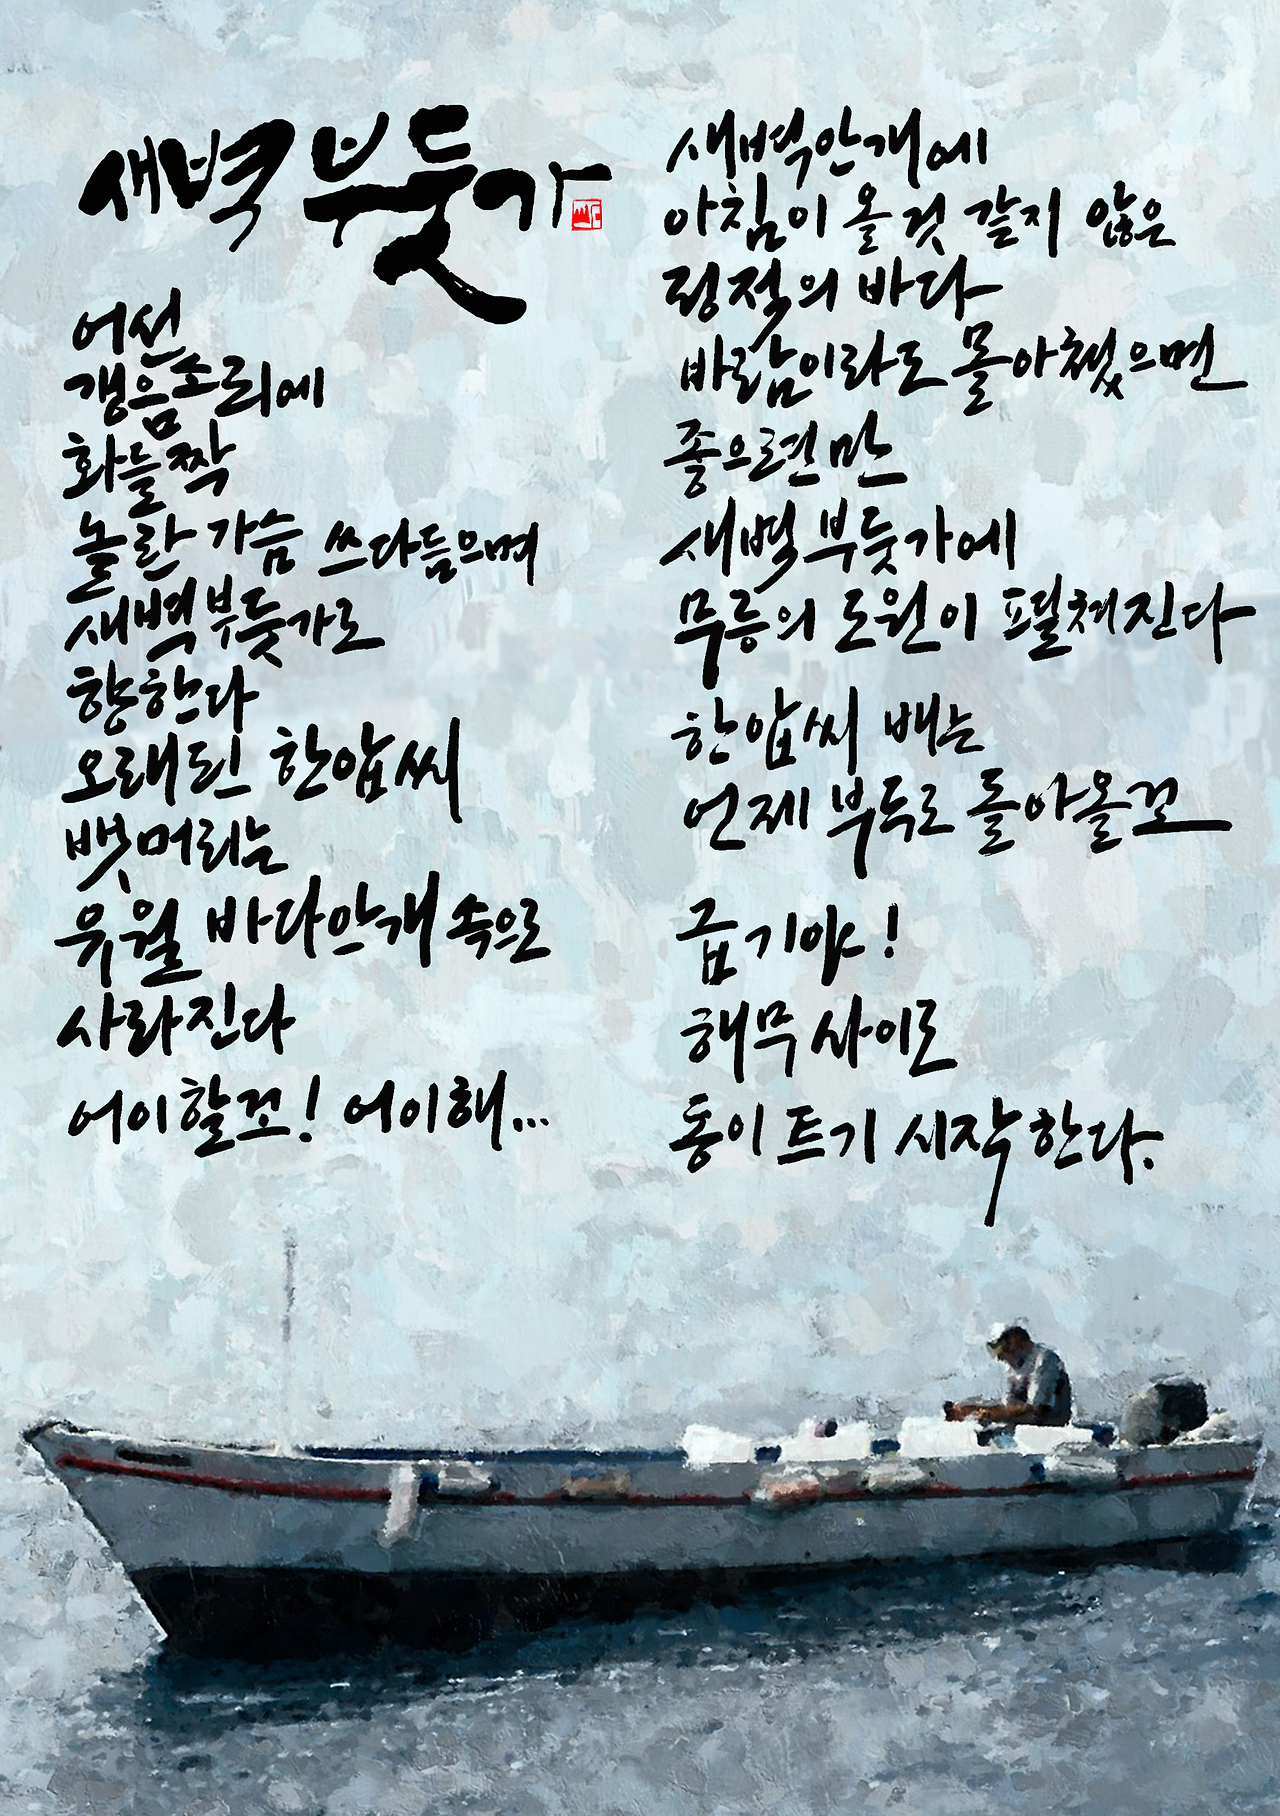 새벽 부둣가
어선
갱음소리에
화들짝
놀란 가슴 쓰다듬으며
새벽 부둣가로
향한다
오래된 한암씨
뱃머리는
유월 바다안개 속으로
사라진다
어이할꼬! 어이해...
새벽안개에
아침이 올 것 같지 않은
정적의 바다
바람이라도 몰아쳤으면
좋으련만
새벽 부둣가에
무릉의 도원이 펼쳐진다
한암씨 배는
언제 부두로 돌아올꼬
급기야!
해무 사이로
동이 트기 시작한다.